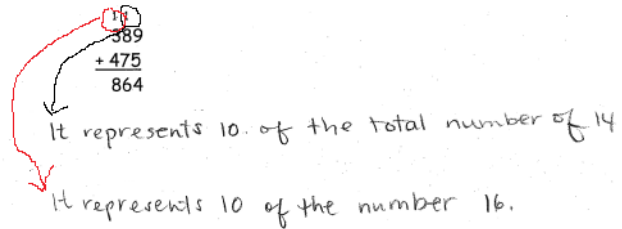 1 1
389
+ 475
864
It represents 10 of the total number of 14
It represents 10 of the number 16.